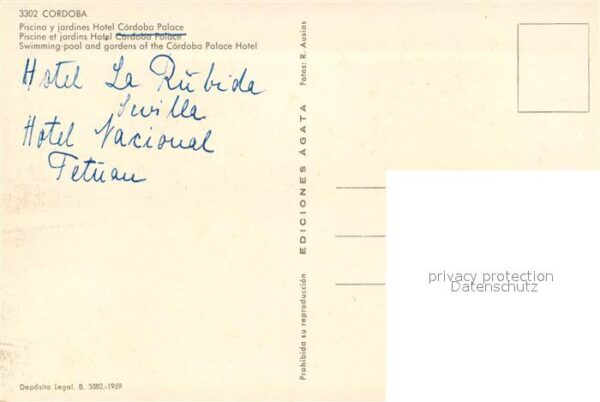 3302 CORDOBA
Piscina y jardines Hotel Córdoba Palace
Piscine et jardins Hotel Cordoba Palace
Swimming-pool and gardens of the Córdoba Palace Hotel
Hotel La Rúbida
Sevilla
Hotel Nacional
Tetúan
Prohibida su reproducción
EDICIONES ÁGATA
Fotos: R. Ausias
privacy protection
Datenschutz
Depósito Legal. B. 3582.-1959